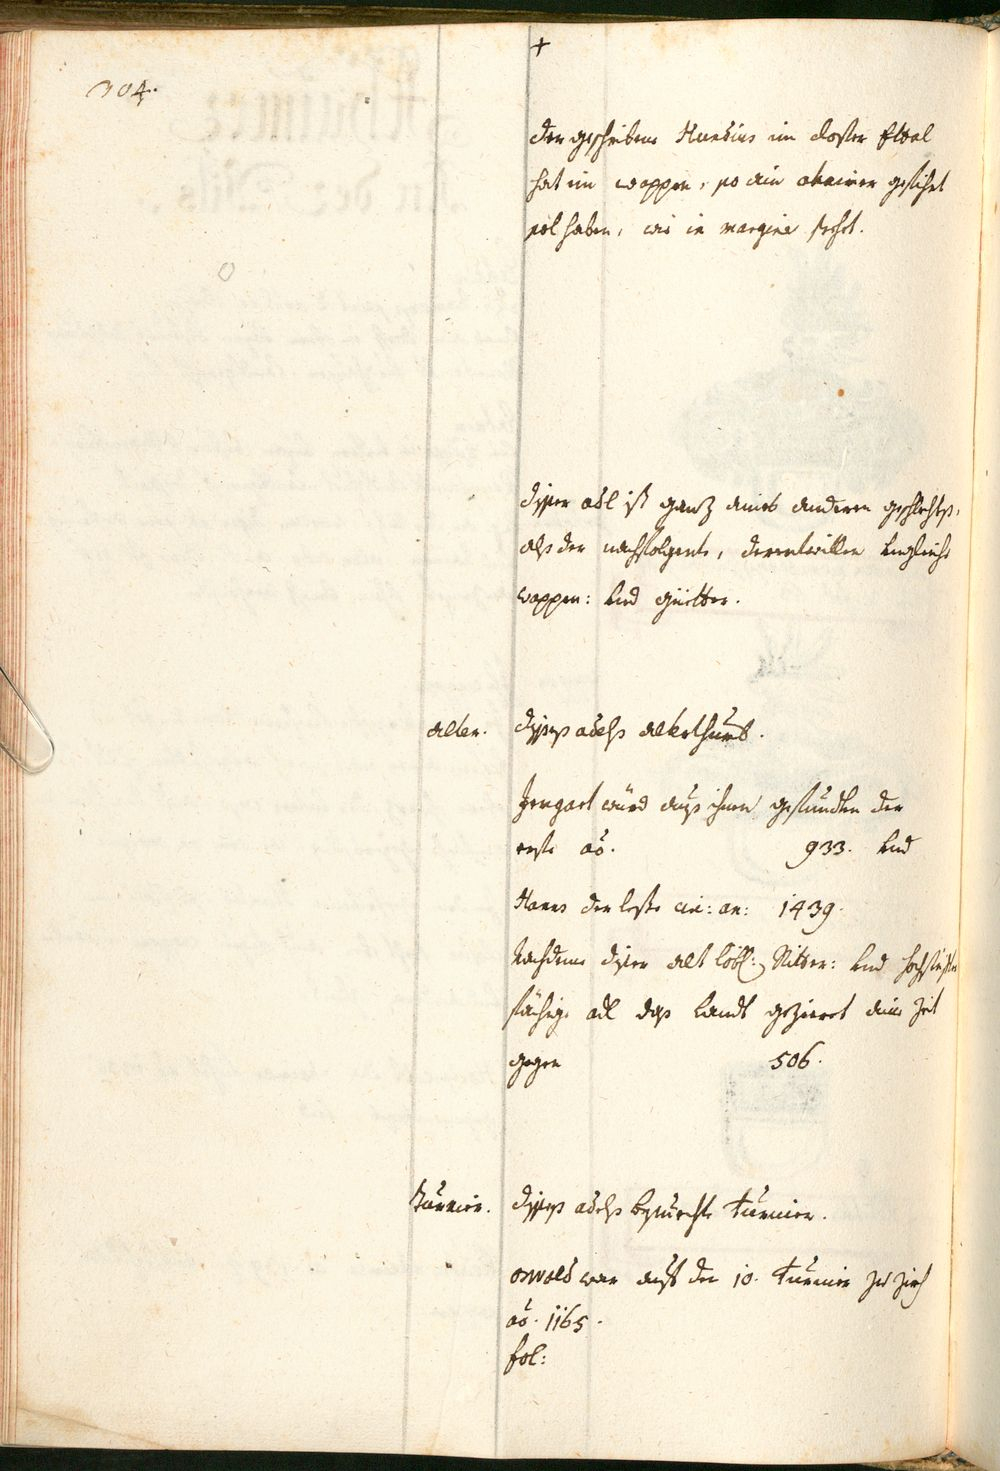 +
304.
der geschribene Hundius im closter Ettal
hat im wappen, so ain gefihrt
sol haben, wie in margine stehet.
diser adl ist ganz aines anderen geschlechts,
als der nachfolgente, derentwillen ungleiche
wappen: und güetter.
alter. dises adels alterthumb.
Irmgart würd auß ihnen gefundten der
erste aō. 933. und
Hanns der leste an: 1439.
Nachdeme diser alt löbl: Ritter: und
fähige adl das landt gezieret eine zeit
gegen 506.
Turnier. dises adels besuechte Turnier.
oswald war auf den 10. Turnier zu Zirch
aō. 1165.
fol: